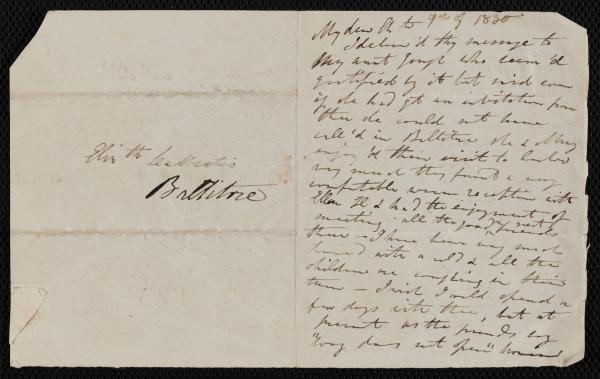 Elizth Leadbeater
Ballitore
My dear Eliz th 9th of 1830
I deliver'd thy message to
My aunt Gough who seem'd
gratified by it but said even
if she had got an invitation from
thee she could not have
call'd in Ballitore she & Mary
enjoy'd their visit to Carlow
very much they found a very
comfortable warm reception with
Ellen H & had the enjoyment of
meeting all the good friends next
there – I have been very much
with a cold & all the
children are coughing in their
turn – I wish I could spend a
few days with thee, but at
present as the friends say
"way does not open" however